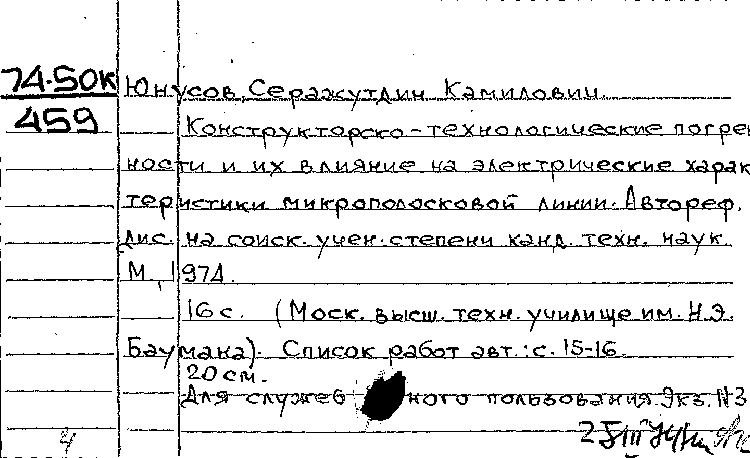 74-50к
459
Юнусов, Серажутдин Камилович.
Конструкторско-технологические погреш
ности и их влияние на электрические харак
теристики микрополосковой линии. Автореф.
дис. на соиск. учен. степени канд. техн. наук.
М., 1974.
16 с. (Моск. высш. техн. училище им. Н.Э.
Баумана). Список работ авт.: с. 15-16.
20 см.
Для служебного пользования. Экз. №3
4